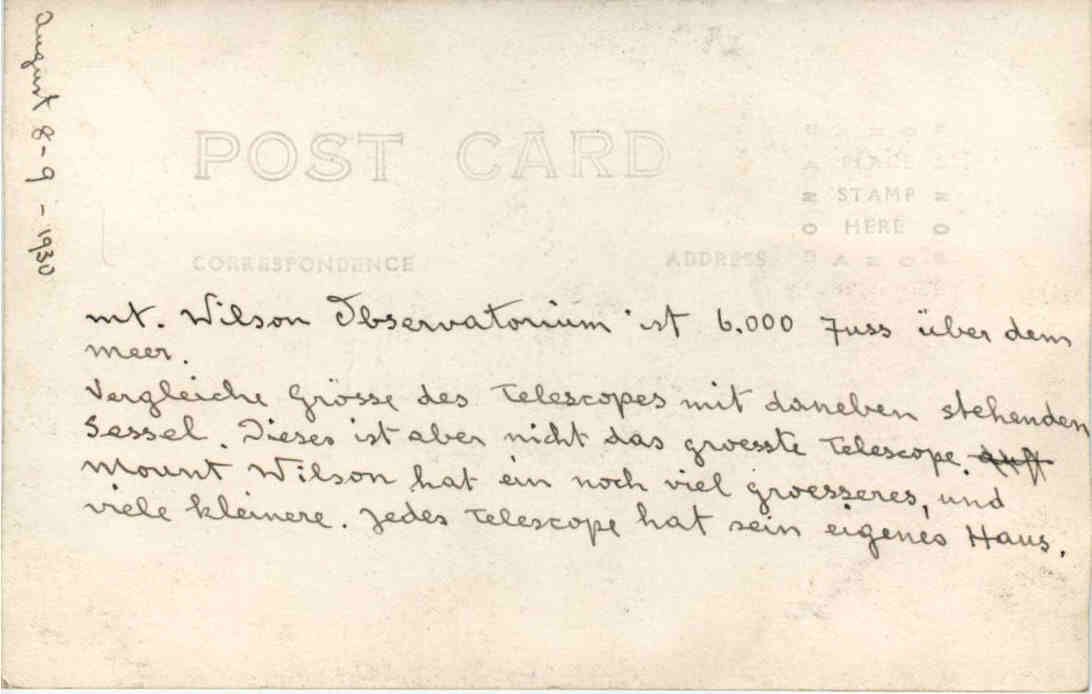 August 8-9-1930
POST CARD
PLACE
STAMP
HERE
CORRESPONDENCE
ADDRESS
mt. Wilson Observatorium ist 6.000 Fuss über dem
meer.
Vergleiche Grösse des Telescopes mit daneben stehenden
Sessel. Dieses ist aber nicht das groesste Telescope.
Mount Wilson hat ein noch viel groesseres, und
viele kleinere. Jedes Telescope hat sein eigenes Haus.